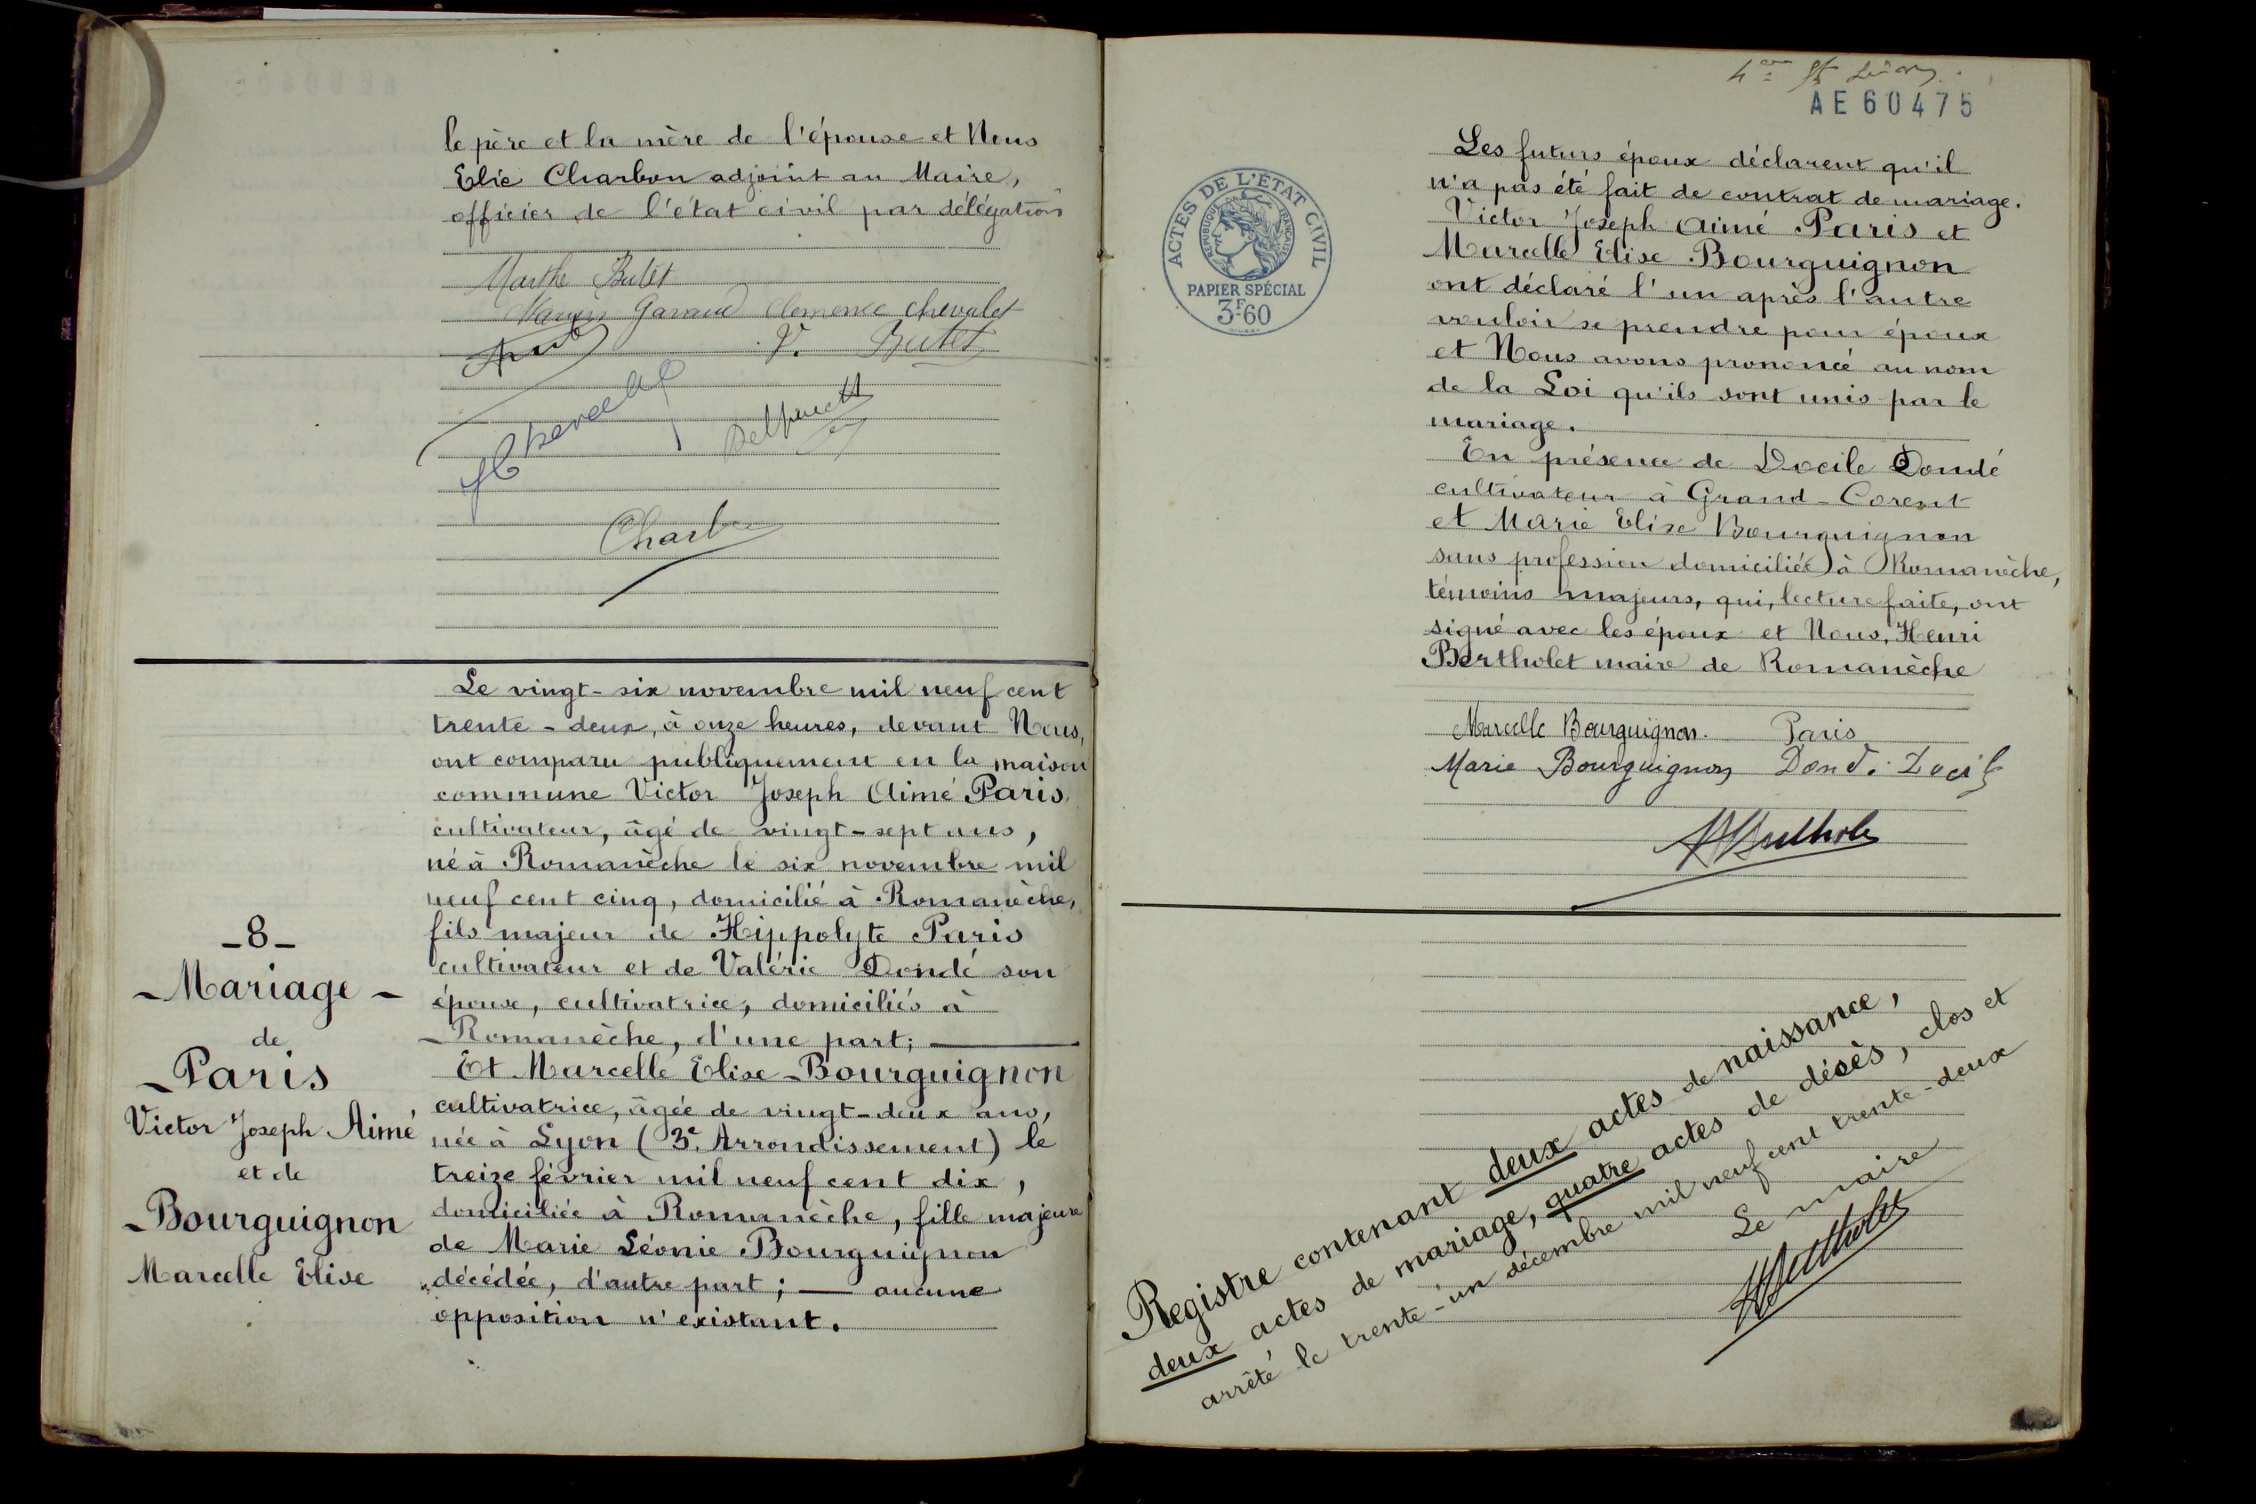 le père et la mère de l'épouse et Nous
Elie Charbon adjoint au Maire,
officier de l'état civil par délégation
Marthe Butet
Garraud Clemence Chevalet
V. Butet
Charbon
-8-
-Mariage-
de
-Paris
Victor Joseph Aimé
et de
-Bourguignon
Marcelle Elise
Le vingt-six novembre mil neuf cent
trente-deux, à onze heures, devant Nous,
ont comparu publiquement en la maison
commune Victor Joseph Aimé Paris,
cultivateur, âgé de vingt-sept ans,
né à Romanèche le six novembre mil
neuf cent cinq, domicilié à Romanèche,
fils majeur de Hippolyte Paris
cultivateur et de Valérie Dondé son
épouse, cultivatrice, domiciliés à
Romanèche, d'une part;
Et Marcelle Elise Bourguignon
cultivatrice, âgée de vingt-deux ans,
née à Lyon (3e. Arrondissement) le
treize février mil neuf cent dix,
domiciliée à Romanèche, fille majeure
de Marie Léonie Bourguignon
décédée, d'autre part; — aucune
opposition n'existant.
AE60475
ACTES DE L'ÉTAT CIVIL
RÉPUBLIQUE FRANÇAISE
PAPIER SPÉCIAL
3F60
Les futurs époux déclarent qu'il
n'a pas été fait de contrat de mariage.
Victor Joseph Aimé Paris et
Marcelle Elise Bourguignon
ont déclaré l'un après l'autre
vouloir se prendre pour époux
et Nous avons prononcé au nom
de la Loi qu'ils sont unis par le
mariage.
En présence de Docile Dondé
cultivateur à Grand-Corent
et Marie Elise Bourguignon
sans profession domiciliée à Romanèche,
témoins majeurs, qui, lecture faite, ont
signé avec les époux et Nous, Henri
Bertholet maire de Romanèche
Marcelle Bourguignon. Paris
Marie Bourguignon Dondé Docile
HBertholet
Registre contenant deux actes de naissance,
deux actes de mariage, quatre actes de décès, clos et
arrêté le trente-un décembre mil neuf cent trente-deux
Le maire
HBertholet